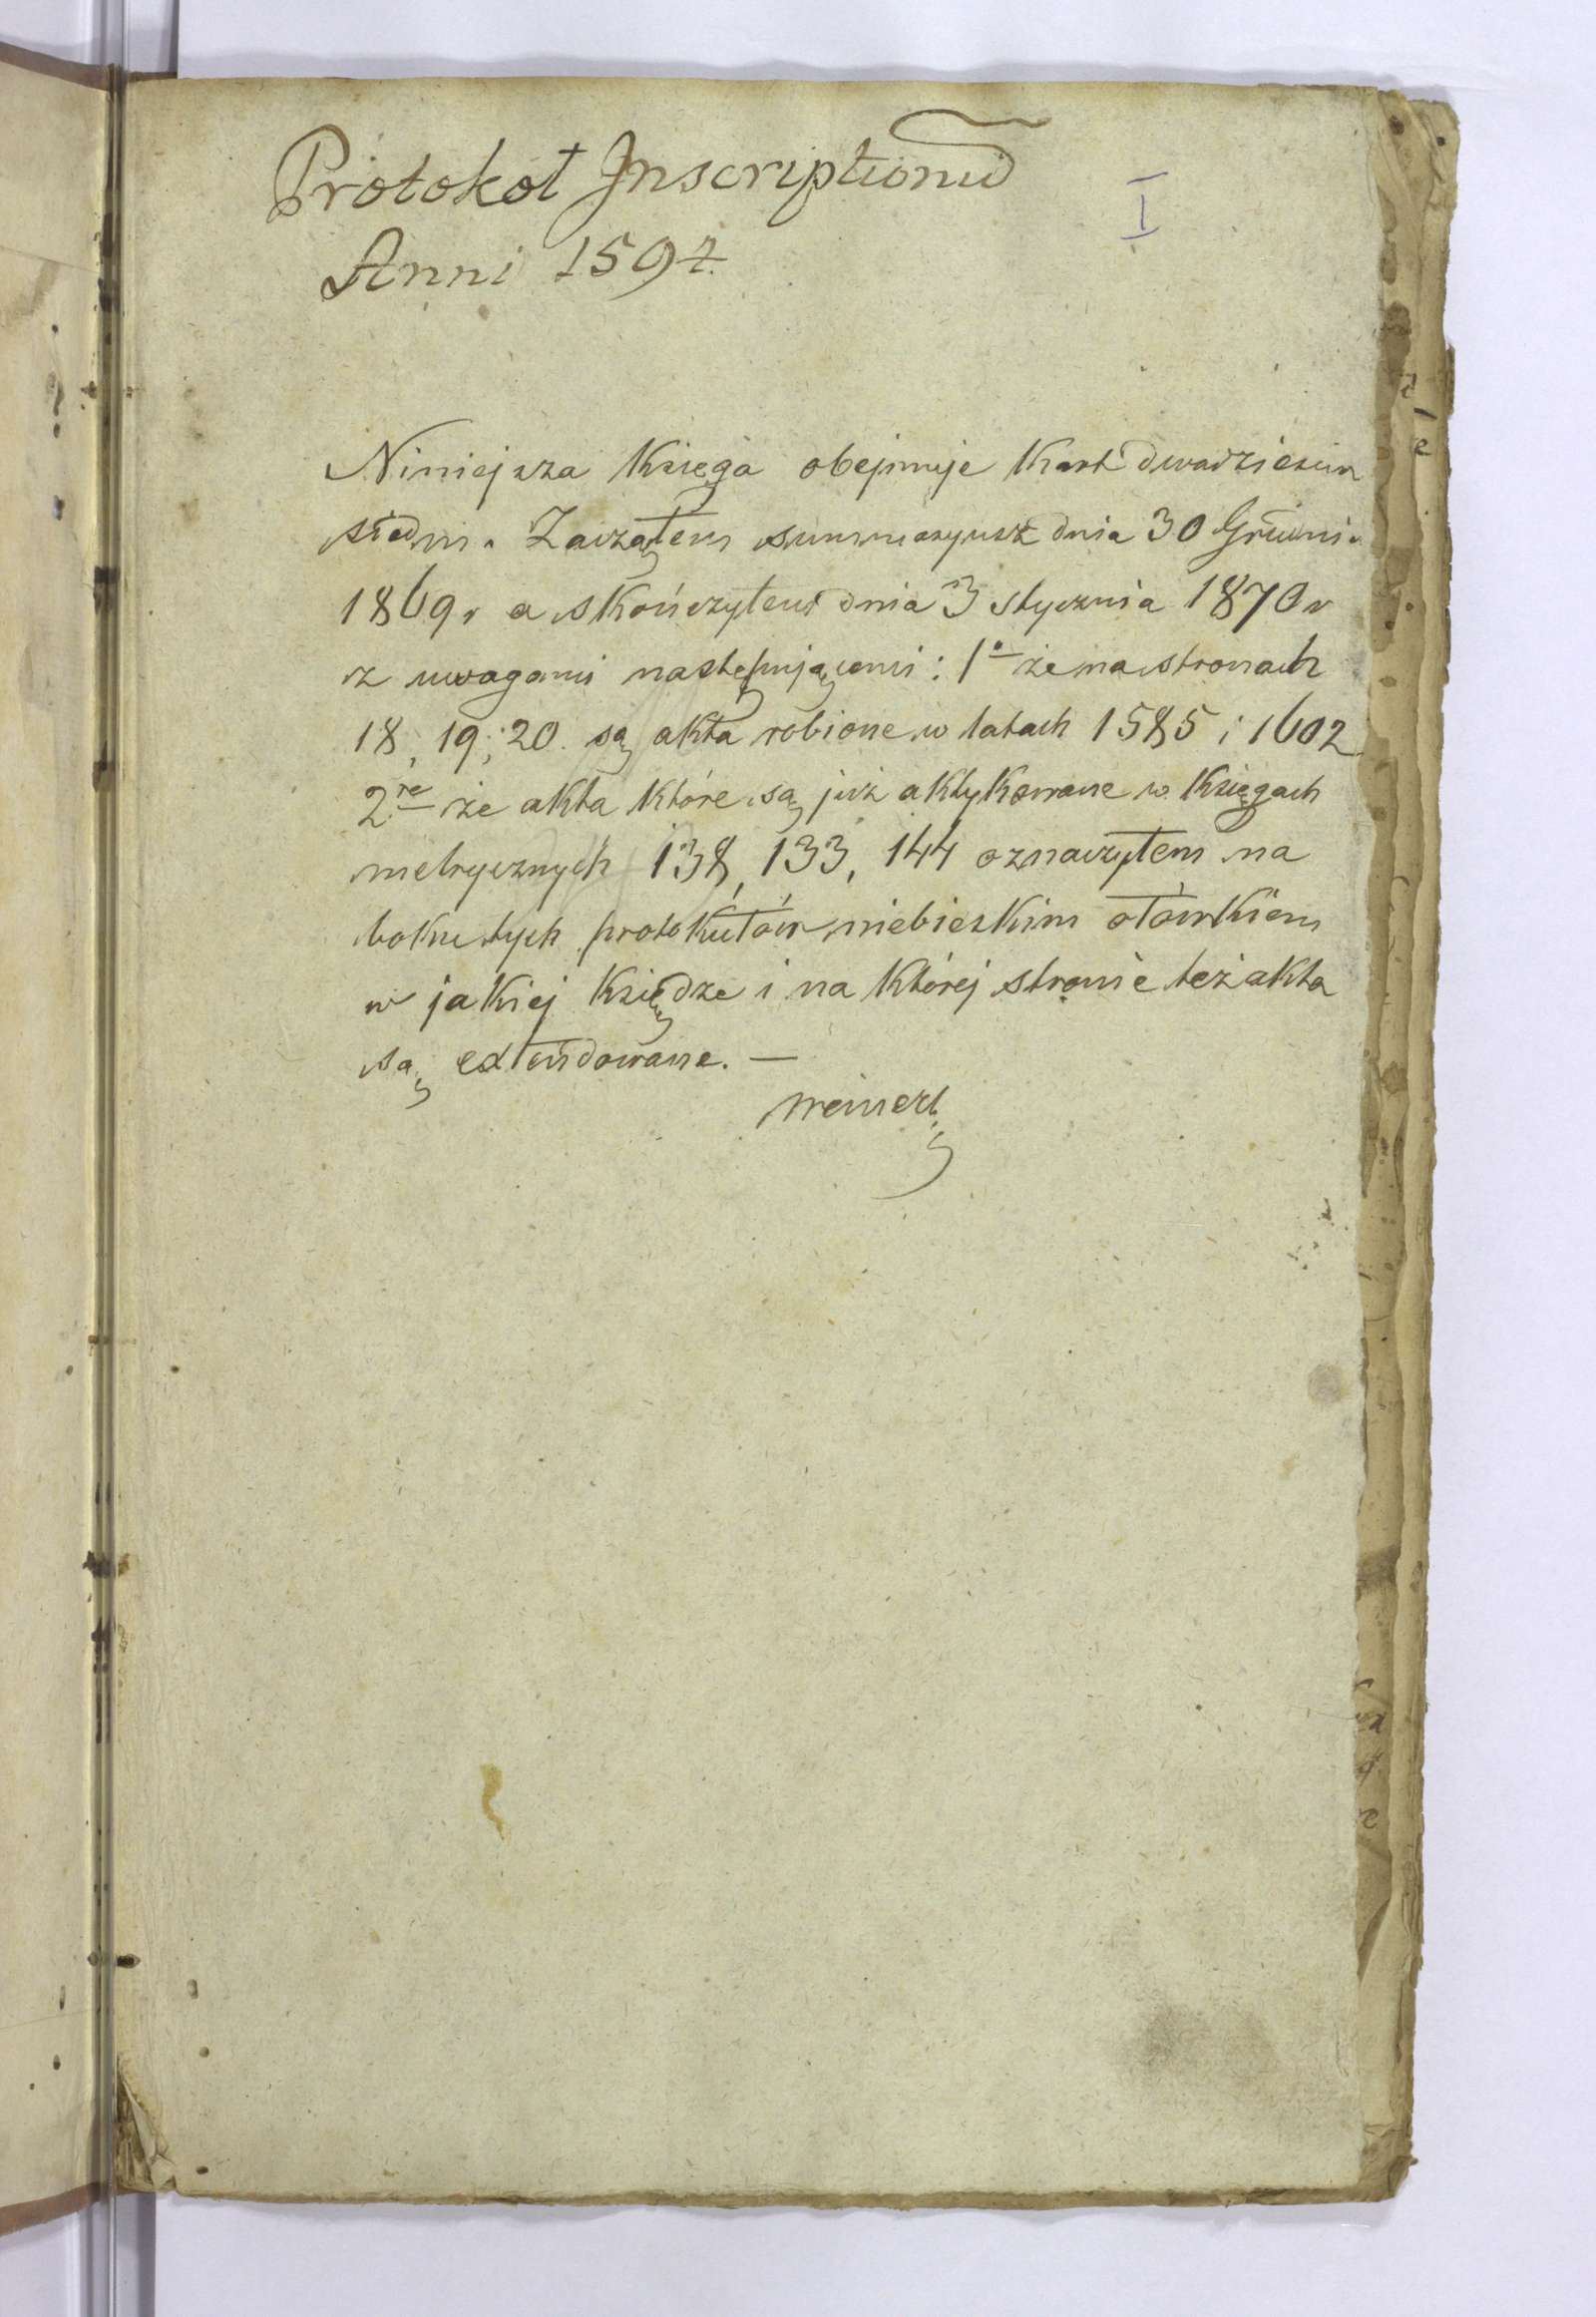 Protokoł Inscriptionū
I
Anni 1597.
Niniejsza Księga obejmuje Kart dwadzieścia
siedm. Zacząłem summaryusz dnia 30 Grudnia
1869 r a skończyłem dnia 3 stycznia 1870 r
z uwagami następującemi: 1o że na stronach
18, 19, 20. są akta robione w latach 1585 i 1602
2re że akta które są już aktykowane w Księgach
metrycznych 138, 133, 144 oznaczyłem na
boku tych protokułów niebieskim ołówkiem
w jakiej Księdze i na której stronie też akta
są extendowane. —
Weinert